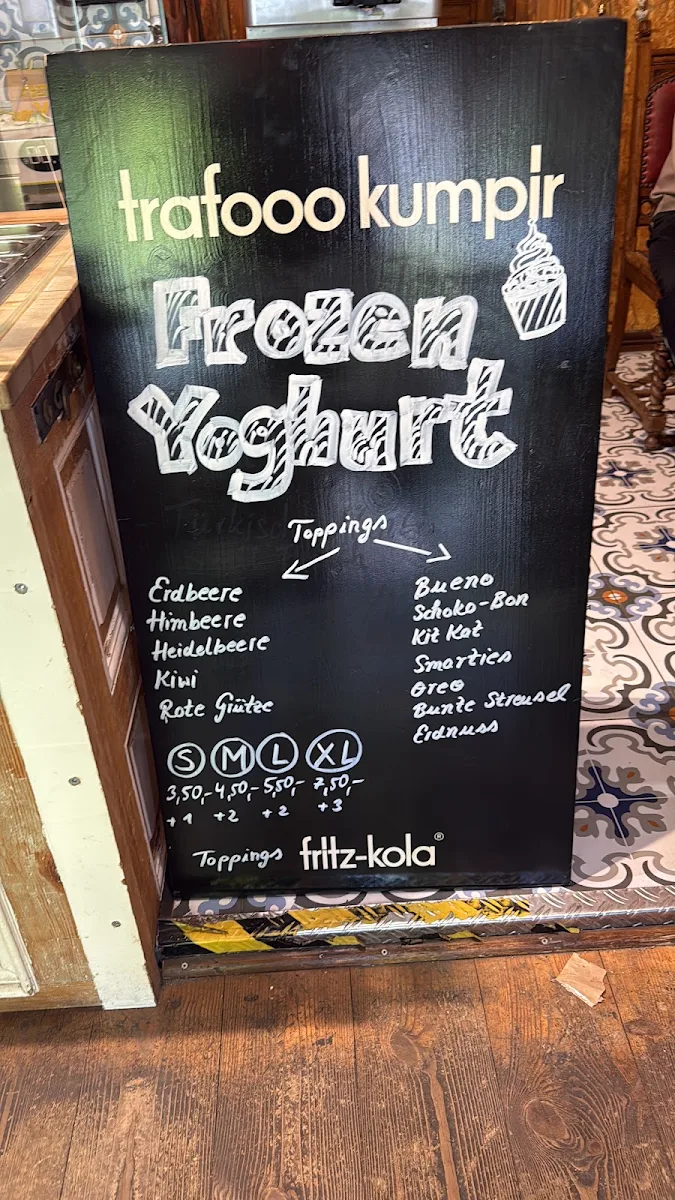 trafooo kumpir
Frozen
Yoghurt
Toppings
Erdbeere
Himbeere
Heidelbeere
Kiwi
Rote Grütze
Bueno
Schoko-Bon
Kit Kat
Smarties
Oreo
Bunte Streusel
Erdnuss
S M L XL
3,50,- 4,50,- 5,50,- 7,50,-
+1 +2 +2 +3
Toppings fritz-kola®